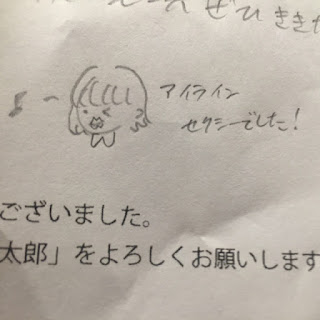 ぜひきき
アイライン
セクシーでした!
ございました。
太郎」をよろしくお願いします